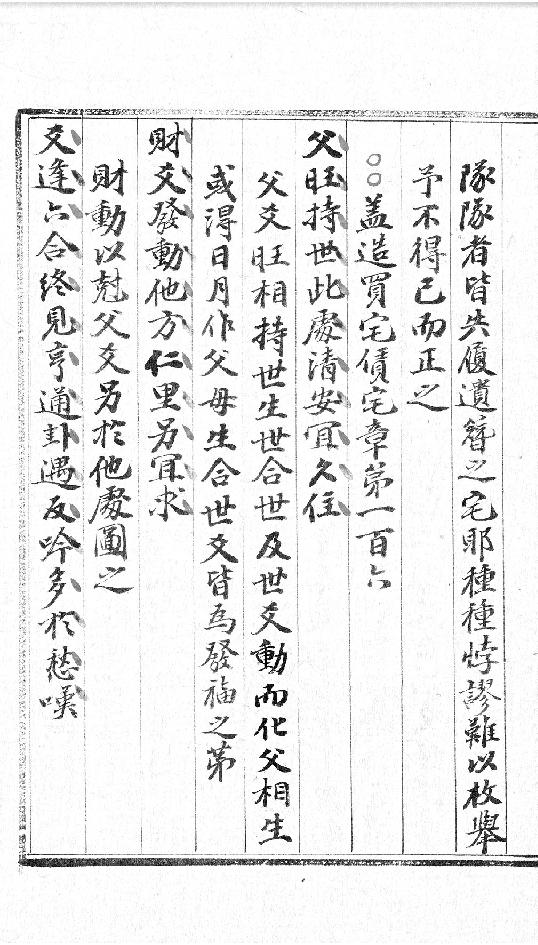 隊隊者皆失履遺簪之宅耶種種悖謬難以枚舉
予不得已而正之
○○蓋造買宅賃宅章第一百六
父旺持世此處清安宜久住
父爻旺相持世生世合世及世爻動而化父相生
或得日月作父母生合世爻皆為發福之第
財爻發動他方仁里另宜求
財動以尅父爻另於他處圖之
爻逢六合終見亨通卦遇反吟多於愁嘆